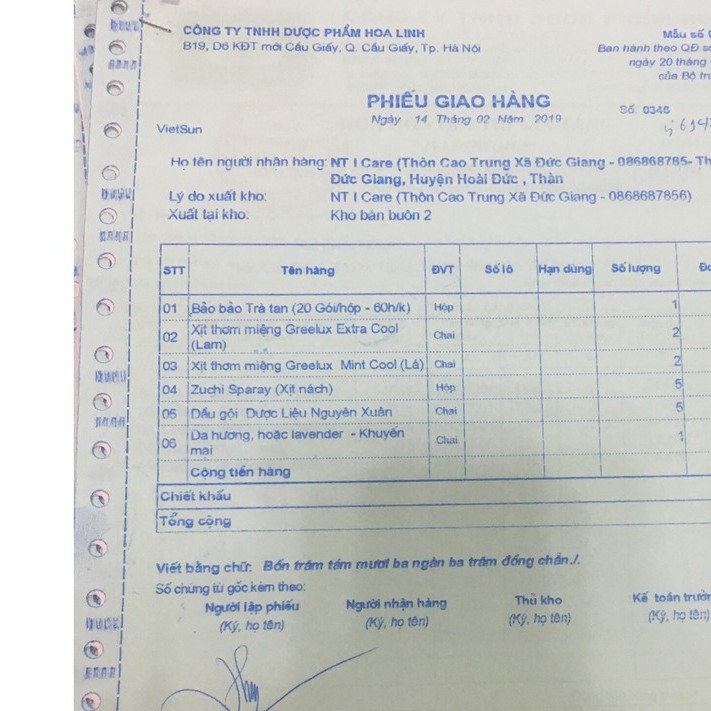 CÔNG TY TNHH DƯỢC PHẨM HOA LINH
B19, D6 KĐT mới Cầu Giấy, Q. Cầu Giấy, Tp. Hà Nội
Mẫu số
Ban hành theo QĐ số
ngày 20 tháng
của Bộ
PHIẾU GIAO HÀNG
Số: 0346
Ngày 14 Tháng 02 Năm 2019
VietSun
Họ tên người nhận hàng: NT I Care (Thôn Cao Trung Xã Đức Giang - 086868785- Th
Đức Giang, Huyện Hoài Đức , Thàn
Lý do xuất kho: NT I Care (Thôn Cao Trung Xã Đức Giang - 0868687856)
Xuất tại kho: Kho bán buôn 2
STT Tên hàng ĐVT Số lô Hạn dùng Số lượng
01 Bảo bảo Trà tan (20 Gói/hộp - 60h/k) Hộp 1
02 Xịt thơm miệng Greelux Extra Cool Chai 2
(Lam)
03 Xịt thơm miệng Greelux Mint Cool (Là) Chai 2
04 Zuchi Sparay (Xịt nách) Hộp 5
05 Dầu gội Dược Liệu Nguyên Xuân Chai 5
06 Dạ hương, hoặc lavender - Khuyến Chai 1
mại
Cộng tiền hàng
Chiết khấu
Tổng cộng
Viết bằng chữ: Bốn trăm tám mươi ba ngàn ba trăm đồng chẵn./.
Số chứng từ gốc kèm theo:
Người lập phiếu Người nhận hàng Thủ kho Kế toán trưở
(Ký, họ tên) (Ký, họ tên) (Ký, họ tên) (Ký, họ tên)